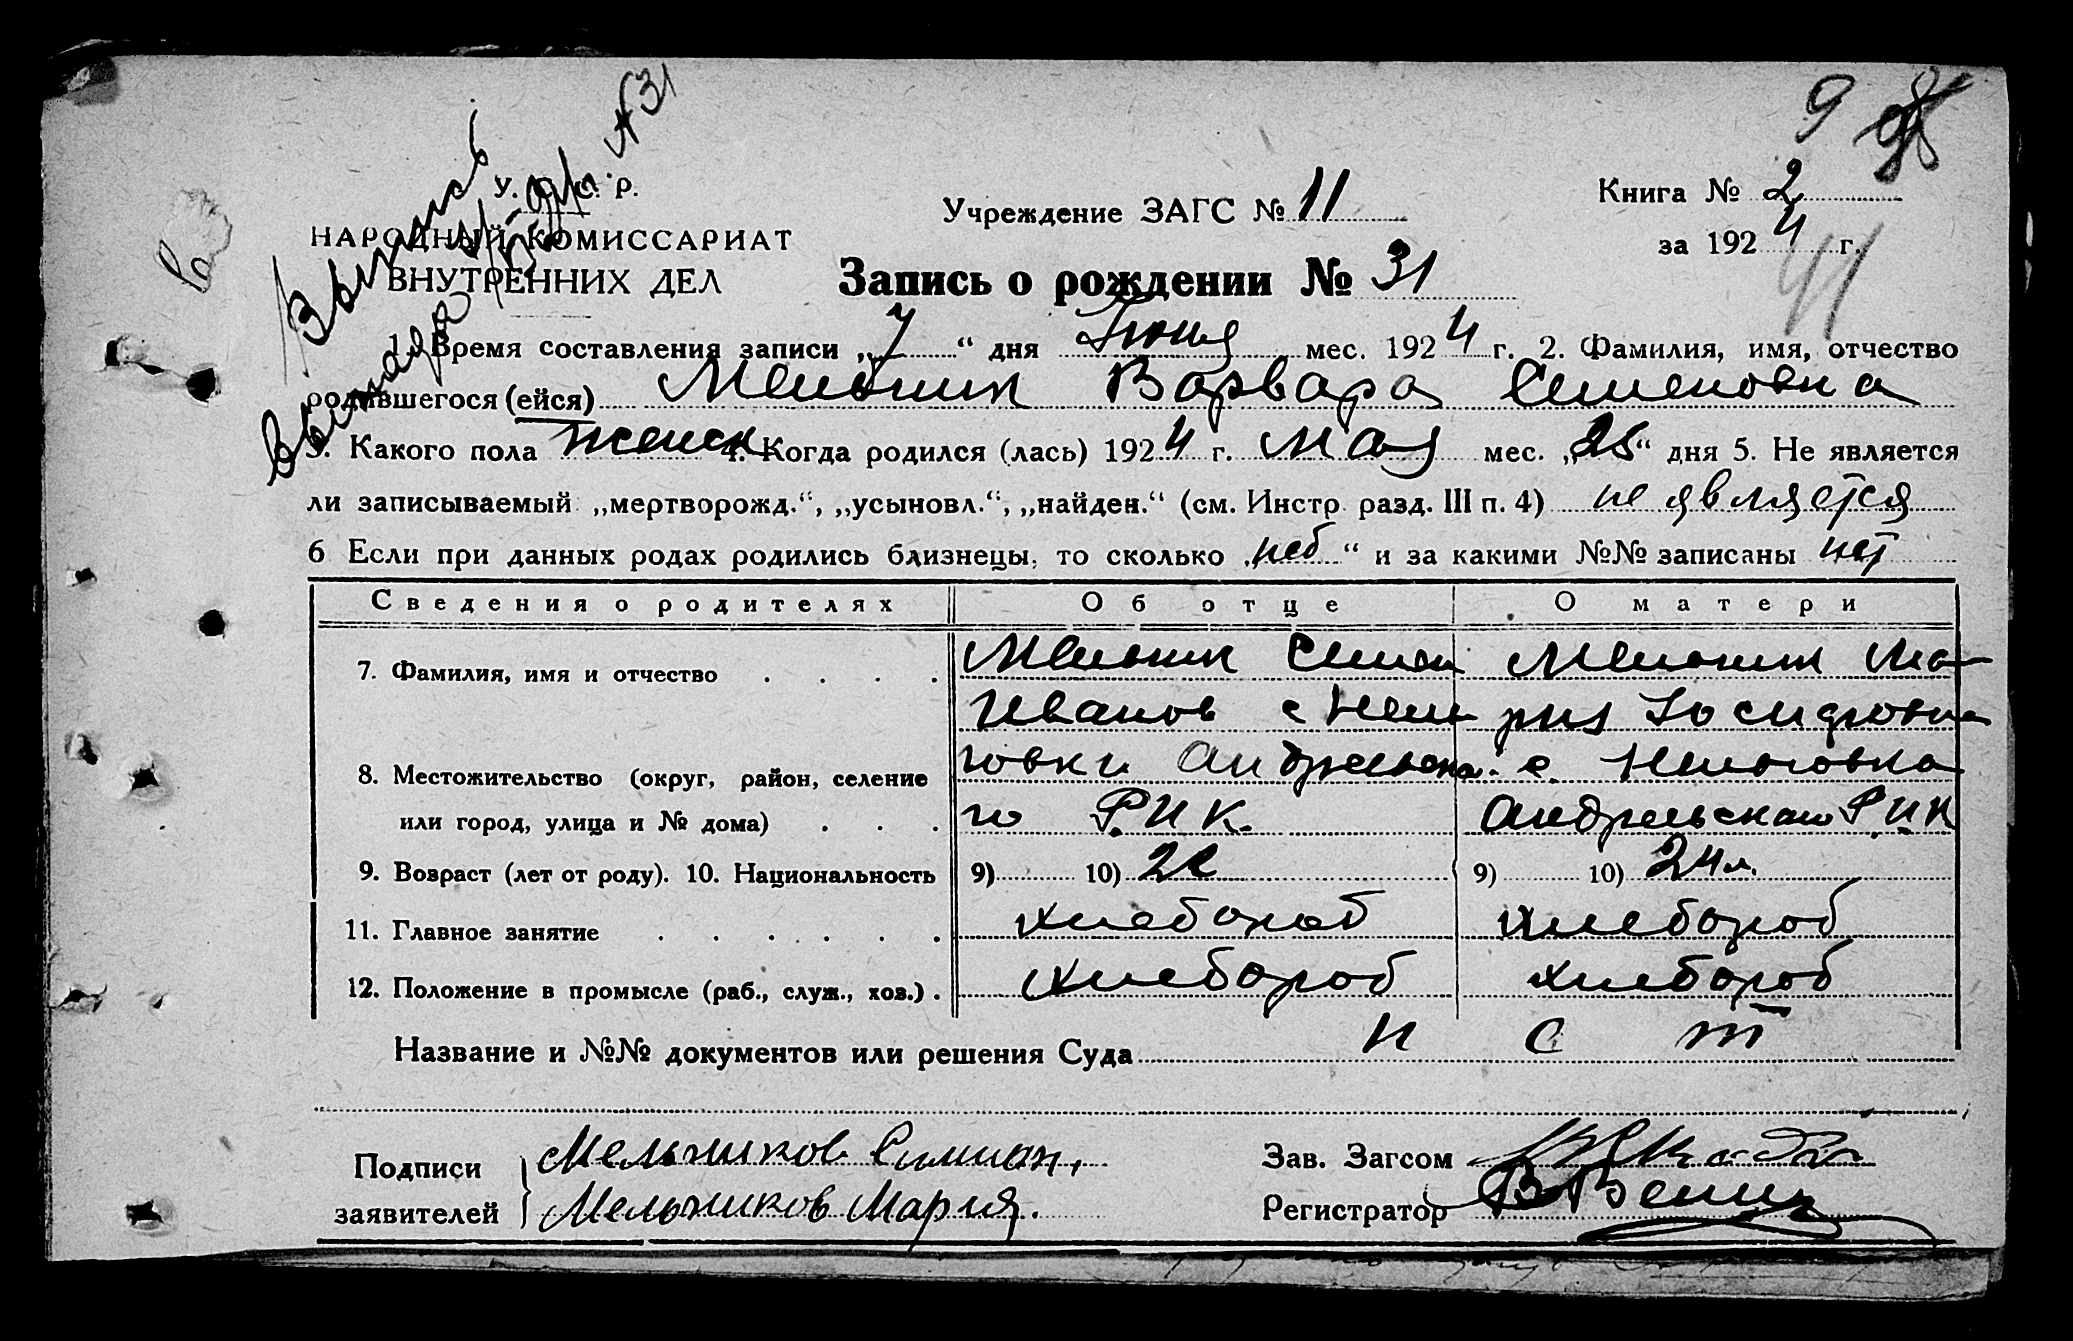 9
Выпись
выдана
№31
У. С. С. Р.
НАРОДНЫЙ КОМИССАРИАТ
ВНУТРЕННИХ ДЕЛ
Учреждение ЗАГС № 11
Книга № 2
за 1924 г.
41
Запись о рождении № 31
1. Время составления записи „7“ дня Июня мес. 1924 г. 2. Фамилия, имя, отчество
родившегося (ейся) Мельник Варвара Семеновна
3. Какого пола женск 4. Когда родился (лась) 1924 г. мая мес. „25“ дня 5. Не является
ли записываемый „мертворожд.“, „усыновл.“, „найден.“ (см. Инстр. разд. III п. 4) не является
6 Если при данных родах родились близнецы, то сколько „нет“ и за какими №№ записаны нет
Сведения о родителях Об отце О матери
7. Фамилия, имя и отчество . . . . Мельник Семен Мельник Ма-
Иванов с рия
8. Местожительство (округ, район, селение
или город, улица и № дома) . . . го Р.И.К. Р.И.К
9. Возраст (лет от роду). 10. Национальность 9) 10) 9) 10) 24 л.
11. Главное занятие . . . . . . хлебороб хлебороб
12. Положение в промысле (раб., служ., хоз.) . хлебороб хлебороб
Название и №№ документов или решения Суда
Подписи Мельников Симион, Зав. Загсом
заявителей Мельников Мария. Регистратор